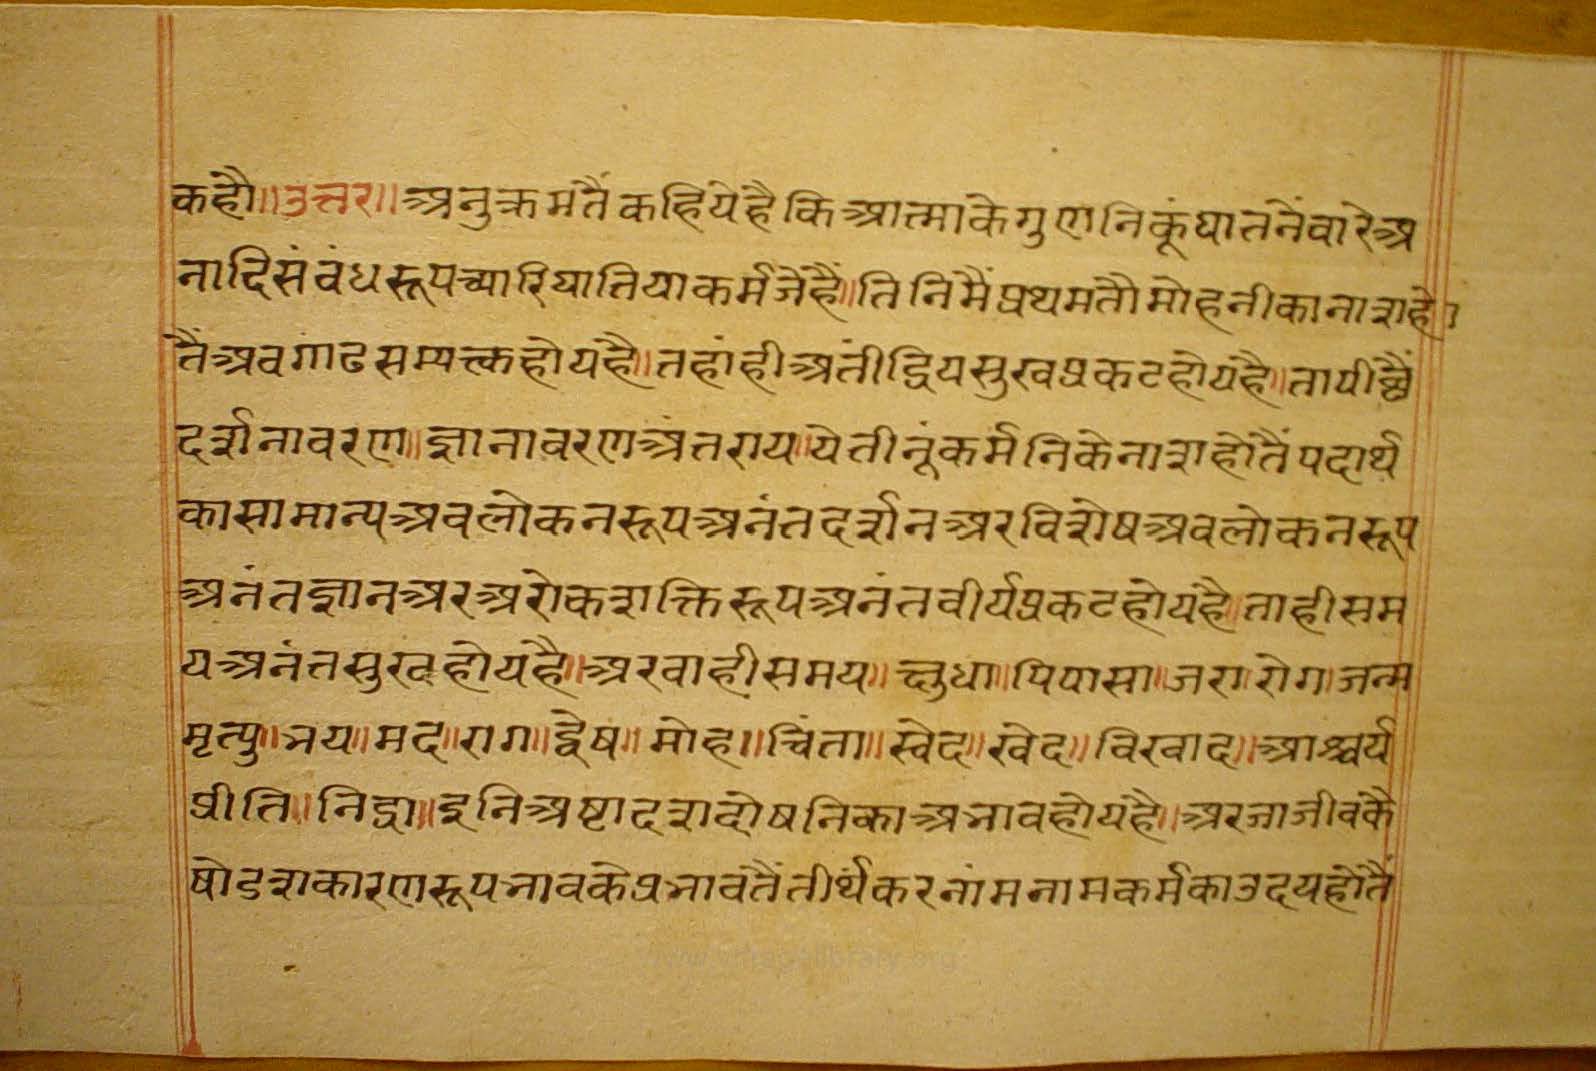 कहौ॥उत्तर॥अनुक्रमतैं कहिये है कि आत्मा के गुणनिकूं घातनैं वारे अ
नादि संबंध रूप च्यारि घातिया कर्म जे हैं॥तिनिमैं प्रथम तौ मोहनी का नाश हो
तैं अवगाढ सम्यक्त होय है॥तहां ही अतींद्रिय सुख प्रकट होय है॥ता पीछैं
दर्शनावरण॥ज्ञानावरण अंतराय॥ये तीनूं कर्मनि के नाश होतैं पदार्थ
का सामान्य अवलोकन रूप अनंत दर्शन अर विशेष अवलोकन रूप
अनंत ज्ञान अर अरोक शक्ति रूप अनंत वीर्य प्रकट होय है॥ताही सम
य अनंत सुख होय है॥अर वाही समय॥क्षुधा॥पिपासा॥जरा॥रोग॥जन्म
मृत्यु॥भय॥मद॥राग॥द्वेष॥मोह॥चिंता॥स्वेद॥खेद॥विखाद॥आश्चर्य
प्रीति॥निद्रा॥इनि अष्टादश दोषनि का अभाव होय है॥अर जा जीव कै
षोडश कारण रूप भाव के प्रभाव तैं तीर्थंकर नांम नाम कर्म का उदय होतैं
www.vitragelibrary.org